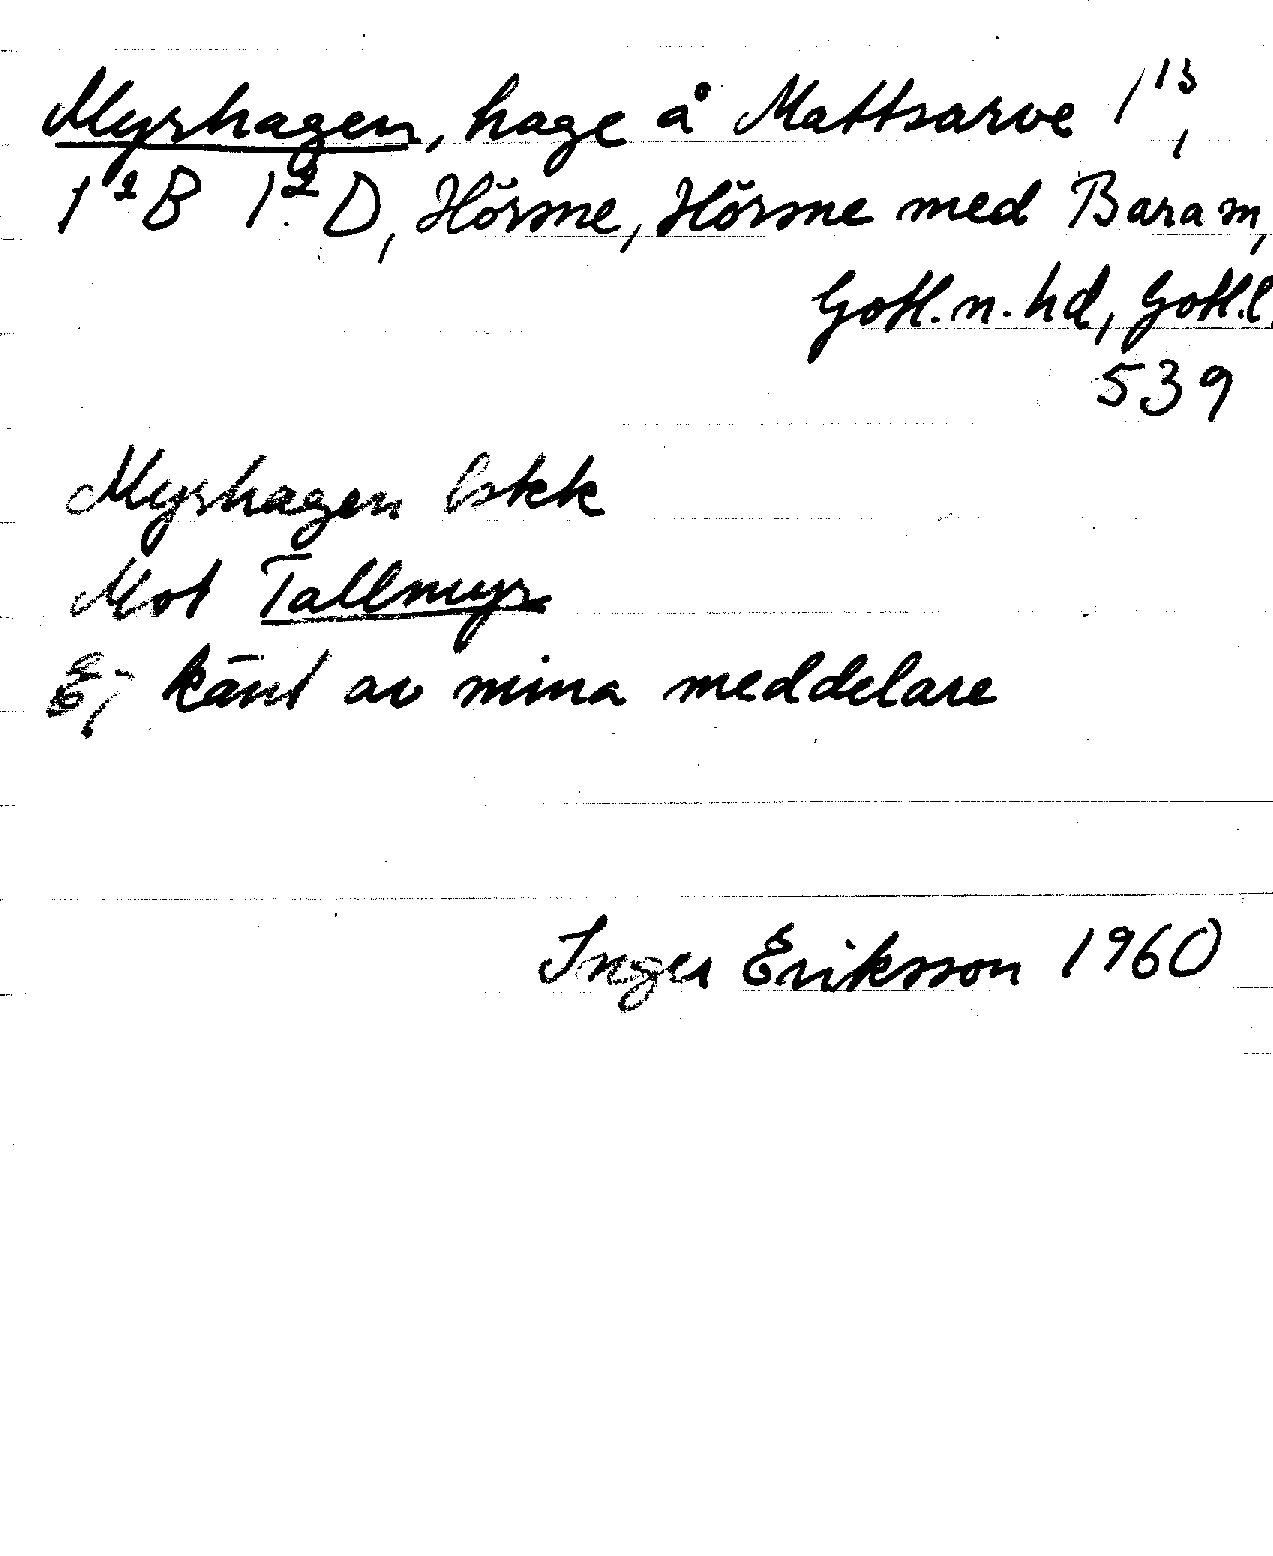 Myrhagen, hage å Mattsarve 1¹³,
1²B 1²D, Hörsne, Hörsne med Bara sn,
Gotl. n. hd, Gotl. l.
539
Myrhagen bskk
Mot Tallmyr
Ej känt av mina meddelare
Inger Eriksson 1960